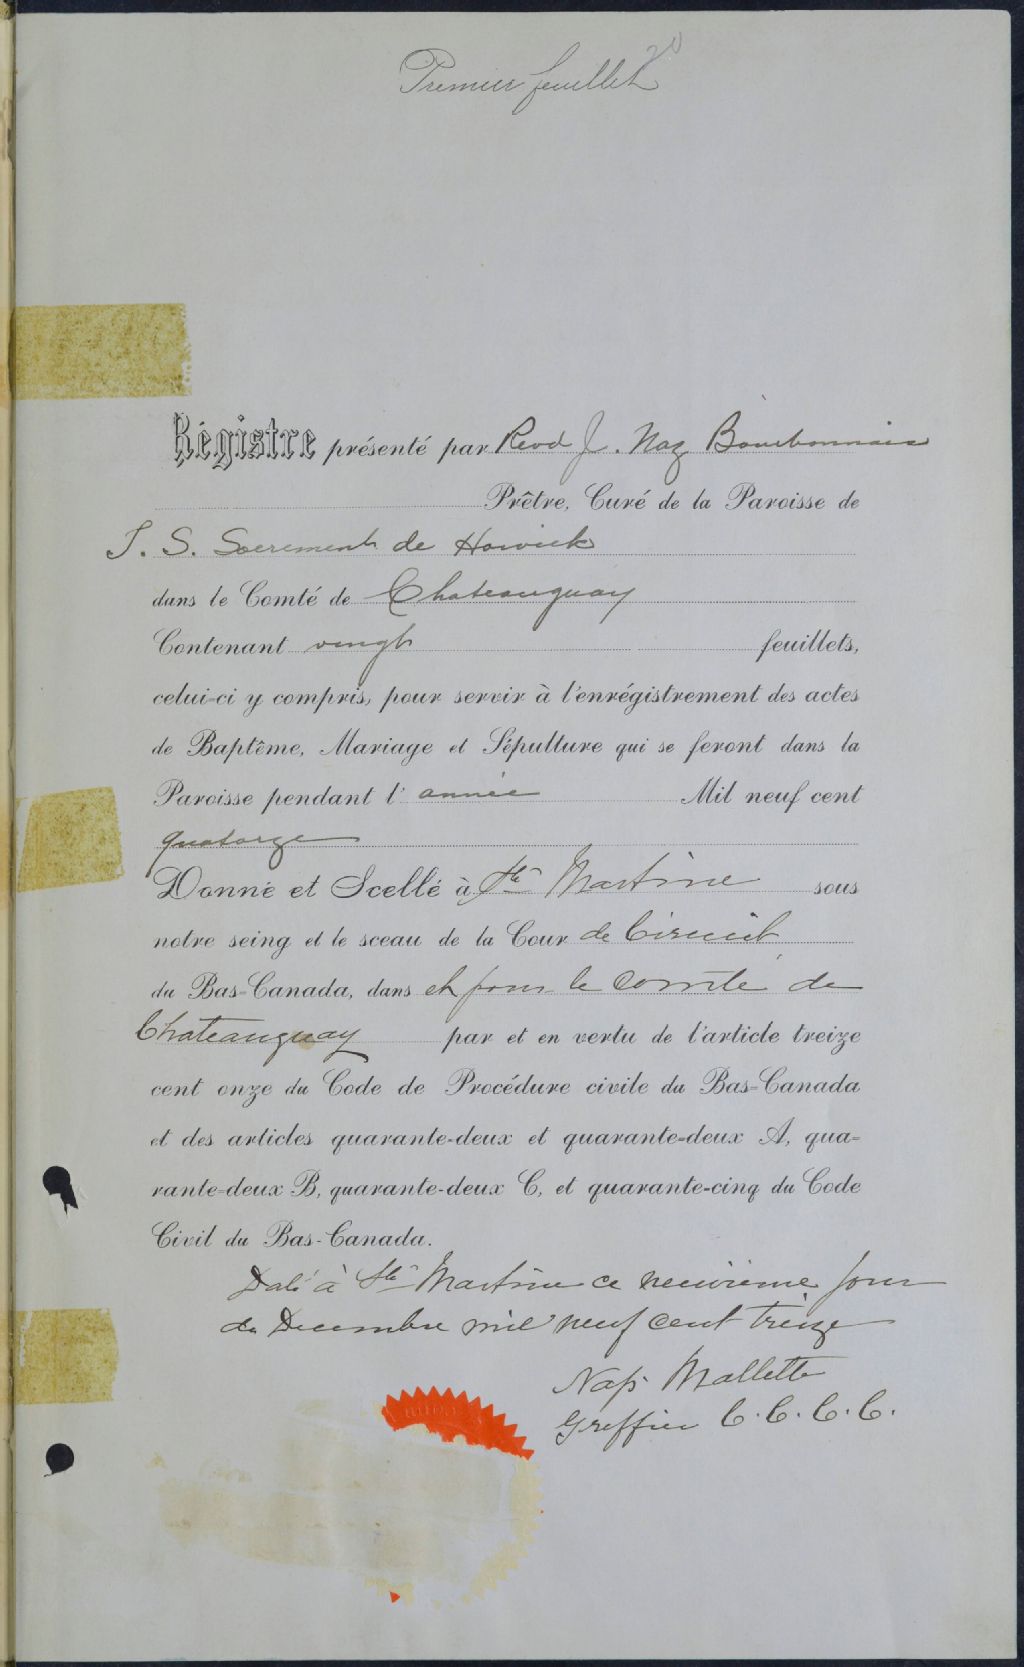 Premier feuillet
20
Régistre présenté par Revd J. Naz Bourbonnais
Prêtre, Curé de la Paroisse de
T. S. Sacrement de Howick
dans le Comté de Chateauguay
Contenant vingt feuillets,
celui-ci y compris, pour servir à l'enrégistrement des actes
de Baptême, Mariage et Sépulture qui se feront dans la
Paroisse pendant l'année Mil neuf cent
quatorze
Donné et Scellé à Ste Martine sous
notre seing et le sceau de la Cour de Circuit
du Bas-Canada, dans et pour le comté de
Chateauguay par et en vertu de l'article treize
cent onze du Code de Procédure civile du Bas-Canada
et des articles quarante-deux et quarante-deux A, qua-
rante-deux B, quarante-deux C, et quarante-cinq du Code
Civil du Bas-Canada.
Daté à Ste Martine ce neuvieme jour
de Decembre mil neuf cent treize
Nap. Mallette
Greffier C. C. C. C.